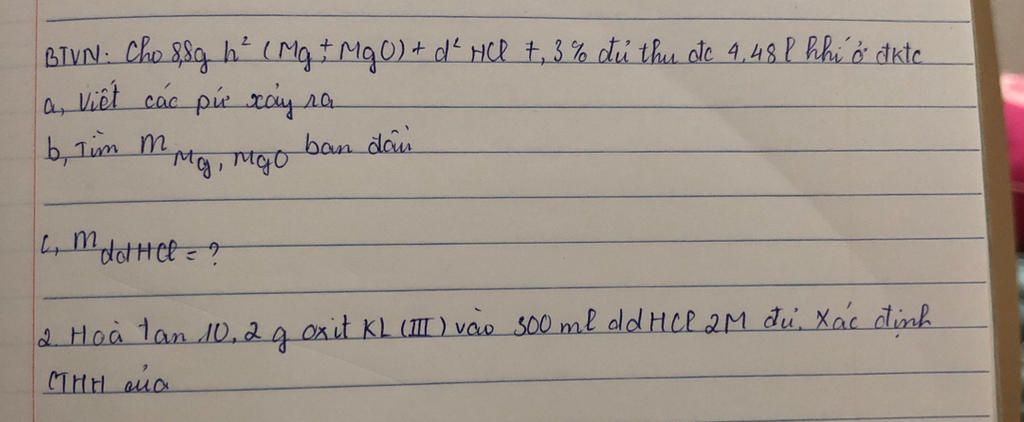 BTVN: Cho 8,8g h² (Mg + MgO) + d² HCl 7,3% đủ thu đc 4,48l khí ở đktc
a, Viết các pứ xảy ra
b, Tìm m Mg, MgO ban đầu
c, m ddHCl = ?
2. Hoà tan 10,2 g oxit KL (III) vào 300 ml ddHCl 2M đủ. Xác định
CTHH của